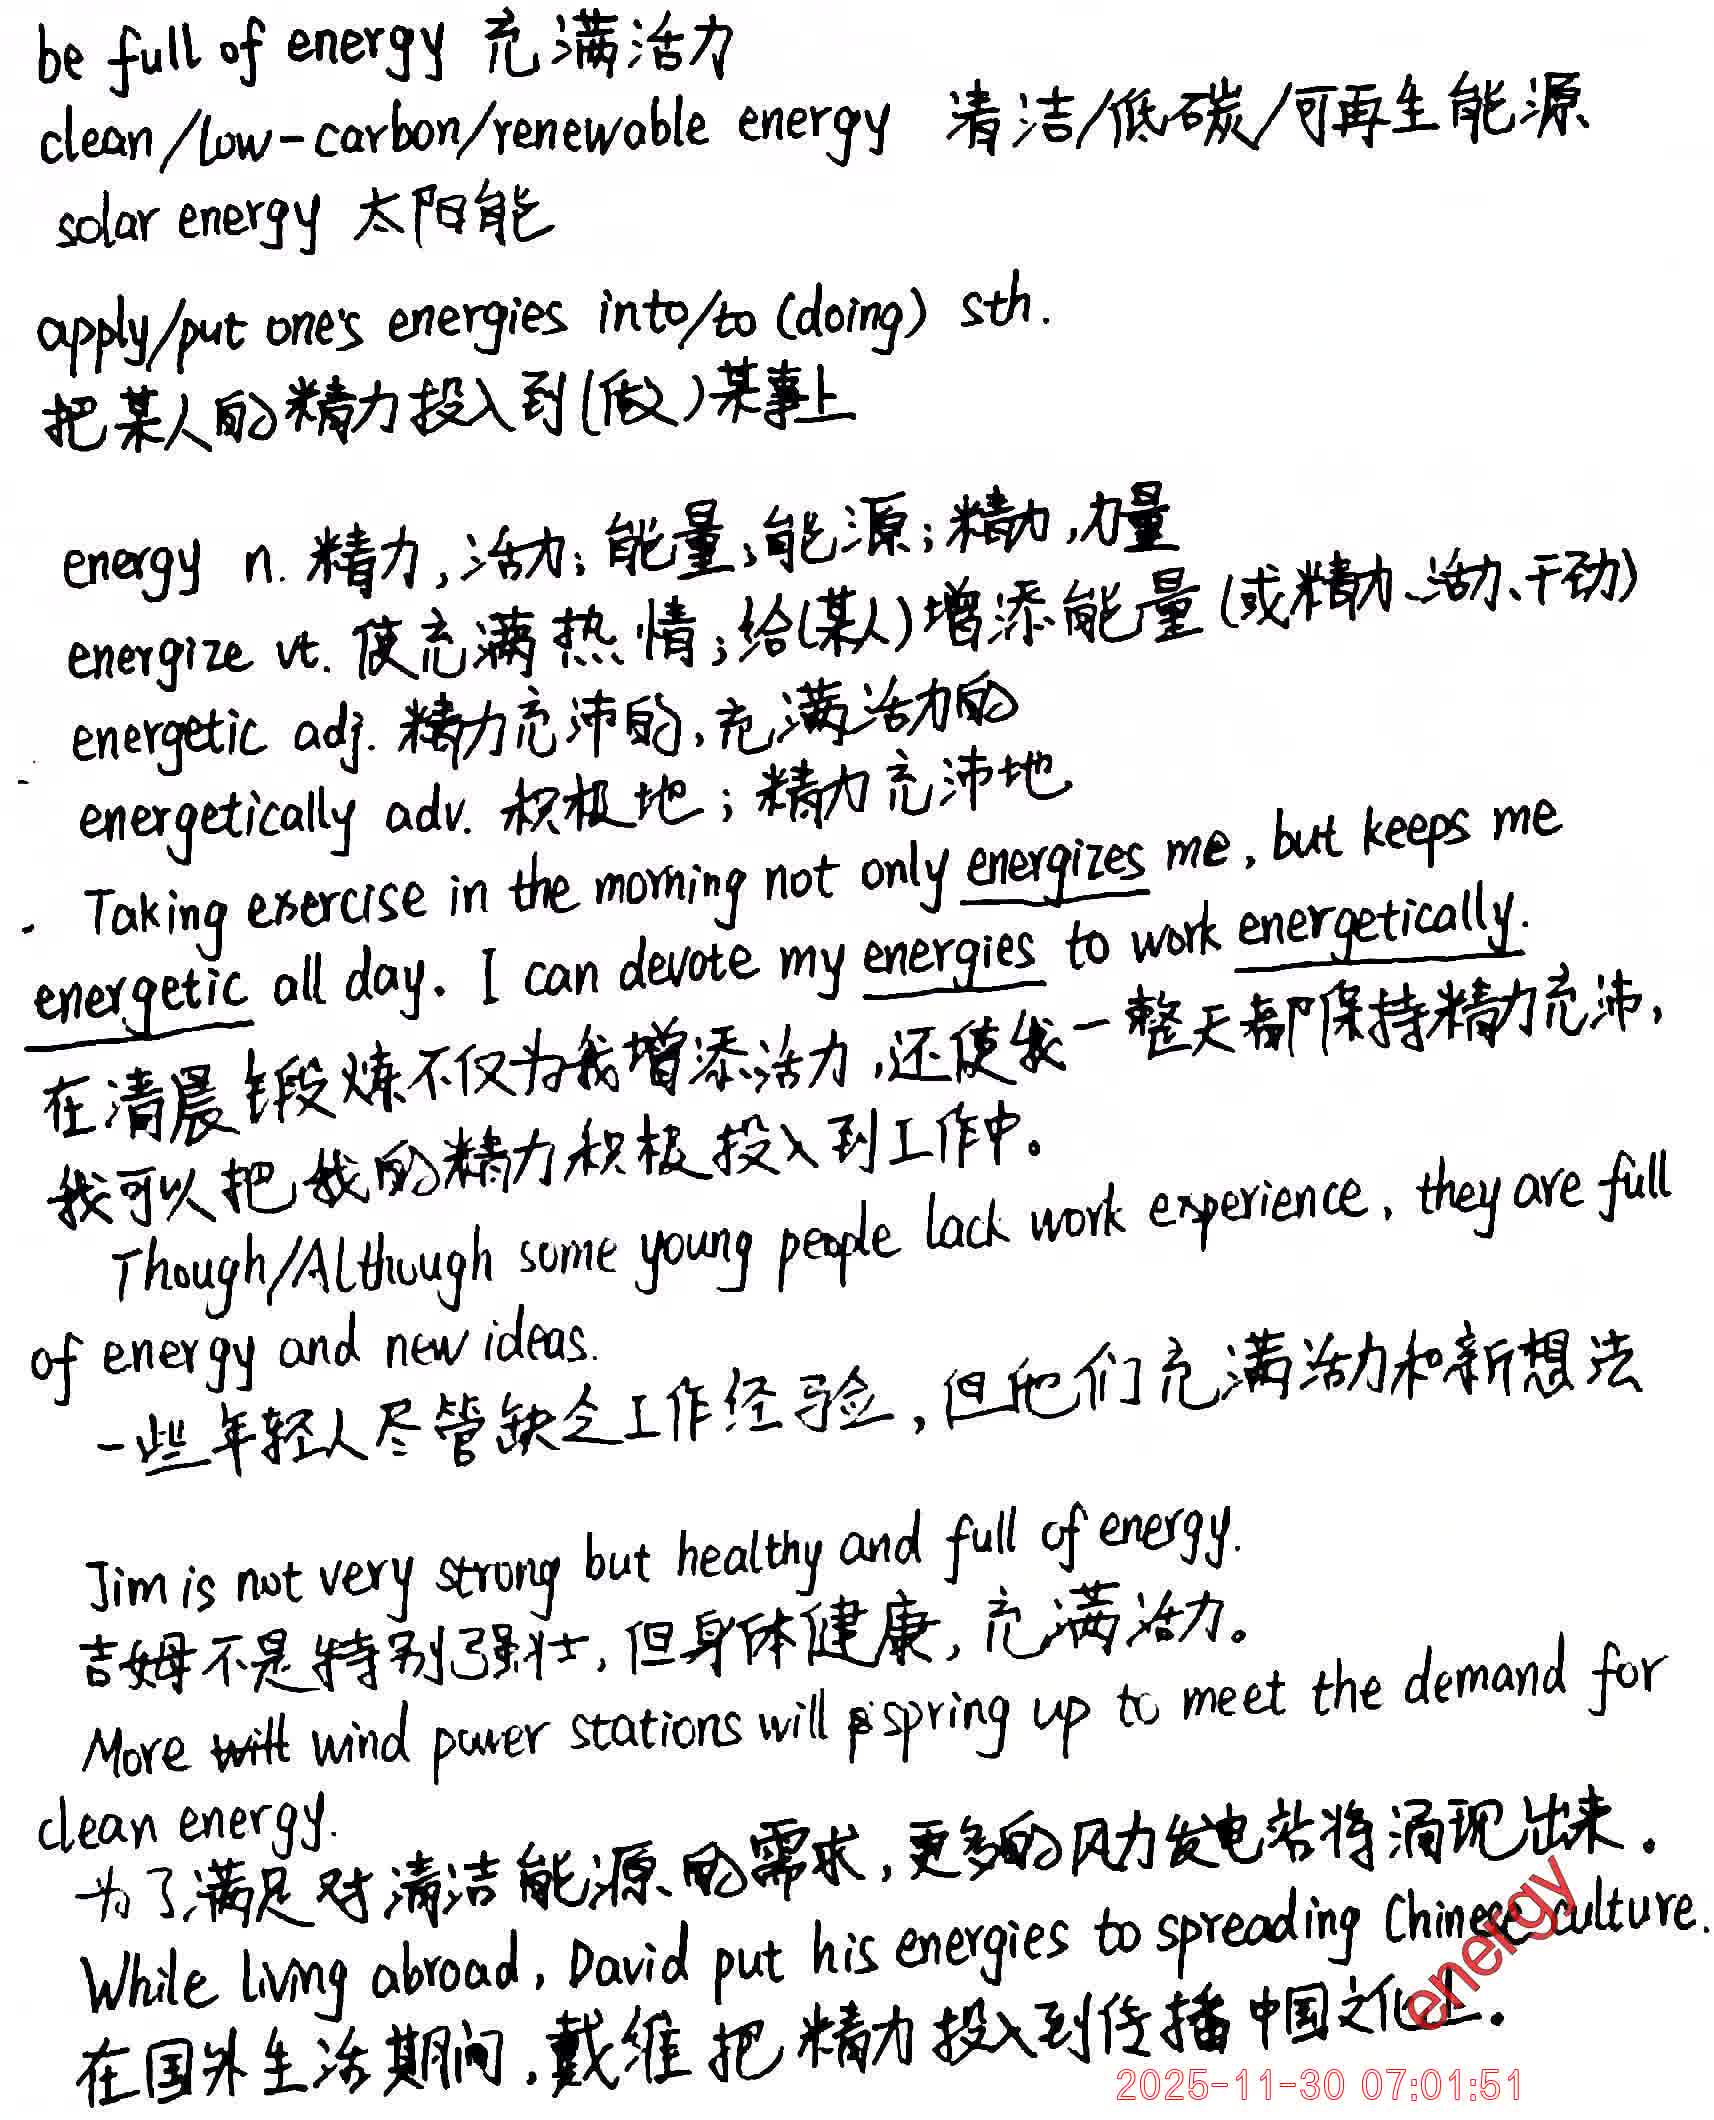 be full of energy 充满活力
clean/low-carbon/renewable energy 清洁/低碳/可再生能源
solar energy 太阳能
apply/put one's energies into/to (doing) sth.
把某人的精力投入到(做)某事上
energy n. 精力,活力;能量;能源;精力,力量
energize vt. 使充满热情;给(某人)增添能量(或精力、活力、干劲)
energetic adj. 精力充沛的,充满活力的
energetically adv. 积极地;精力充沛地
Taking exercise in the morning not only energizes me, but keeps me
energetic all day. I can devote my energies to work energetically.
在清晨锻炼不仅为我增添活力,还使我一整天都保持精力充沛,
我可以把我的精力积极投入到工作中。
Though/Although some young people lack work experience, they are full
of energy and new ideas.
一些年轻人尽管缺乏工作经验,但他们充满活力和新想法
Jim is not very strong but healthy and full of energy.
吉姆不是特别强壮,但身体健康,充满活力。
More will wind power stations will spring up to meet the demand for
clean energy.
为了满足对清洁能源的需求,更多的风力发电站将涌现出来.
While living abroad, David put his energies to spreading Chinese culture.
在国外生活期间,戴维把精力投入到传播中国文化上。
energy
2025-11-30 07:01:51